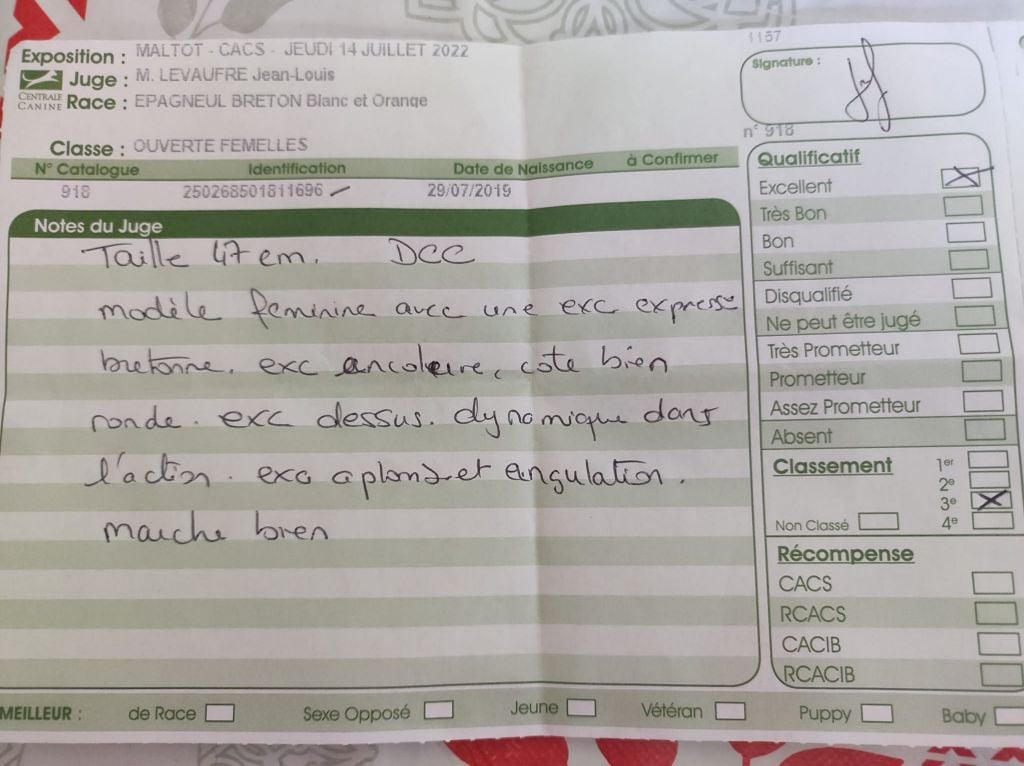 Exposition : MALTOT - CACS - JEUDI 14 JUILLET 2022
Juge : M. LEVAUFRE Jean-Louis
CENTRALE CANINE
Race : EPAGNEUL BRETON Blanc et Orange
Classe : OUVERTE FEMELLES
N° Catalogue Identification Date de Naissance à Confirmer
918 250268501811696 29/07/2019
Notes du Juge
Taille 47 cm. DCC
modèle feminine avec une exc express
bretonne. exc encolure, cote bien
ronde. exc dessus. dynamique dans
l'action. exc aplombs et angulation.
marche bien
1157
Signature :
n° 918
Qualificatif
Excellent
Très Bon
Bon
Suffisant
Disqualifié
Ne peut être jugé
Très Prometteur
Prometteur
Assez Prometteur
Absent
Classement 1er
2e
3e
Non Classé 4e
Récompense
CACS
RCACS
CACIB
RCACIB
MEILLEUR : de Race Sexe Opposé Jeune Vétéran Puppy Baby